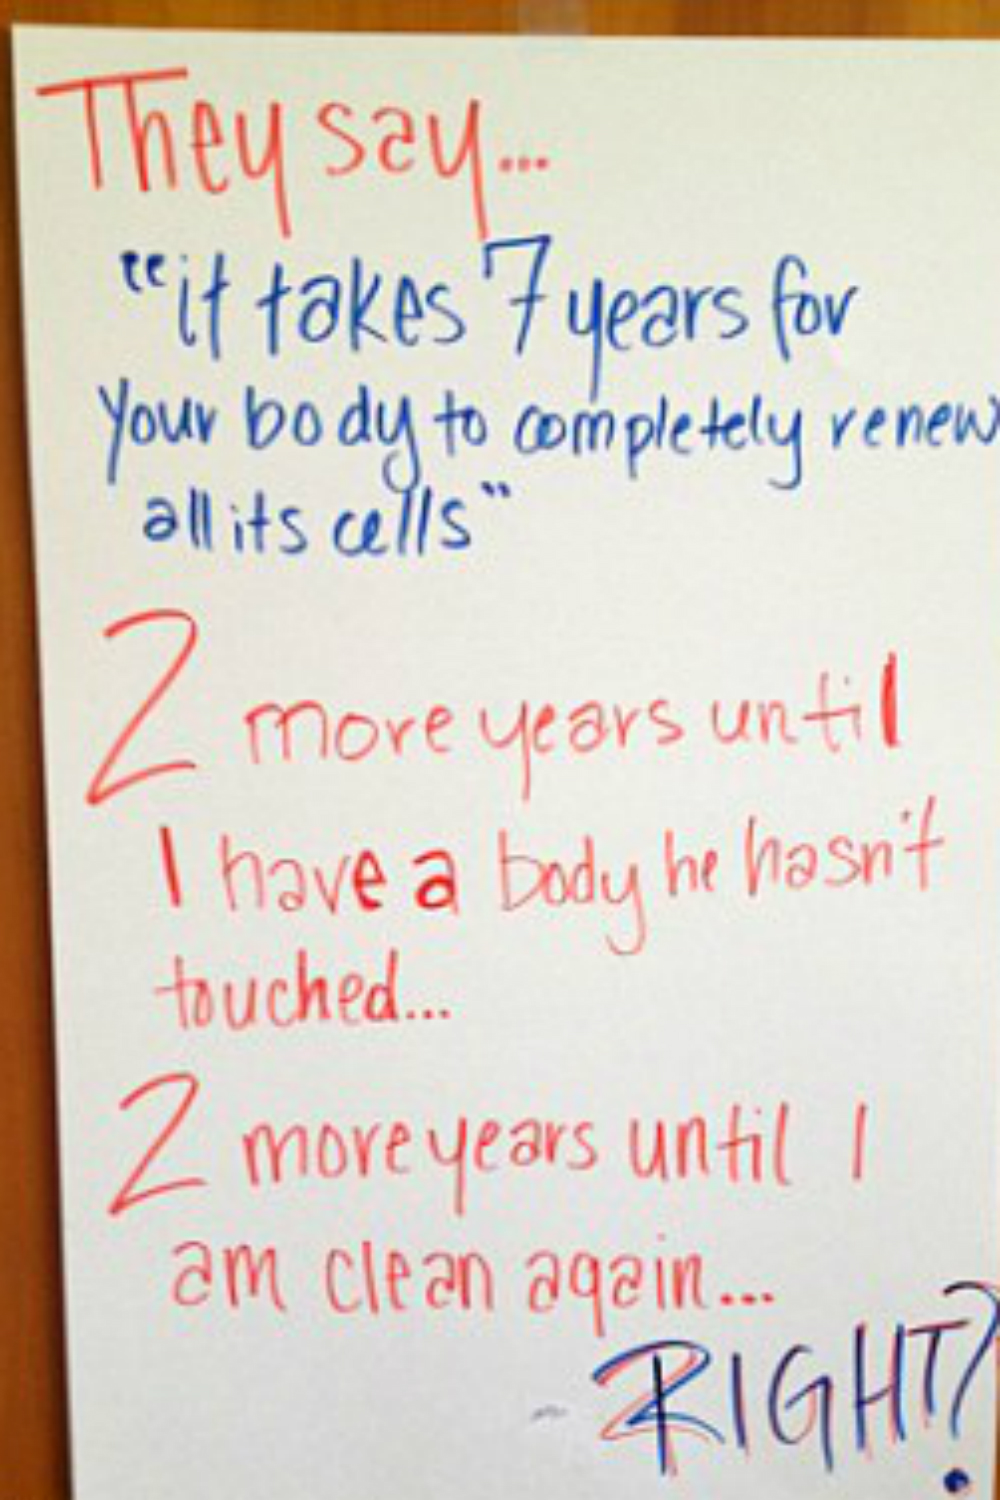 They say...
"it takes 7 years for
your body to completely renew
all its cells"
2 more years until
I have a body he hasn't
touched...
2 more years until I
am clean again...
RIGHT?